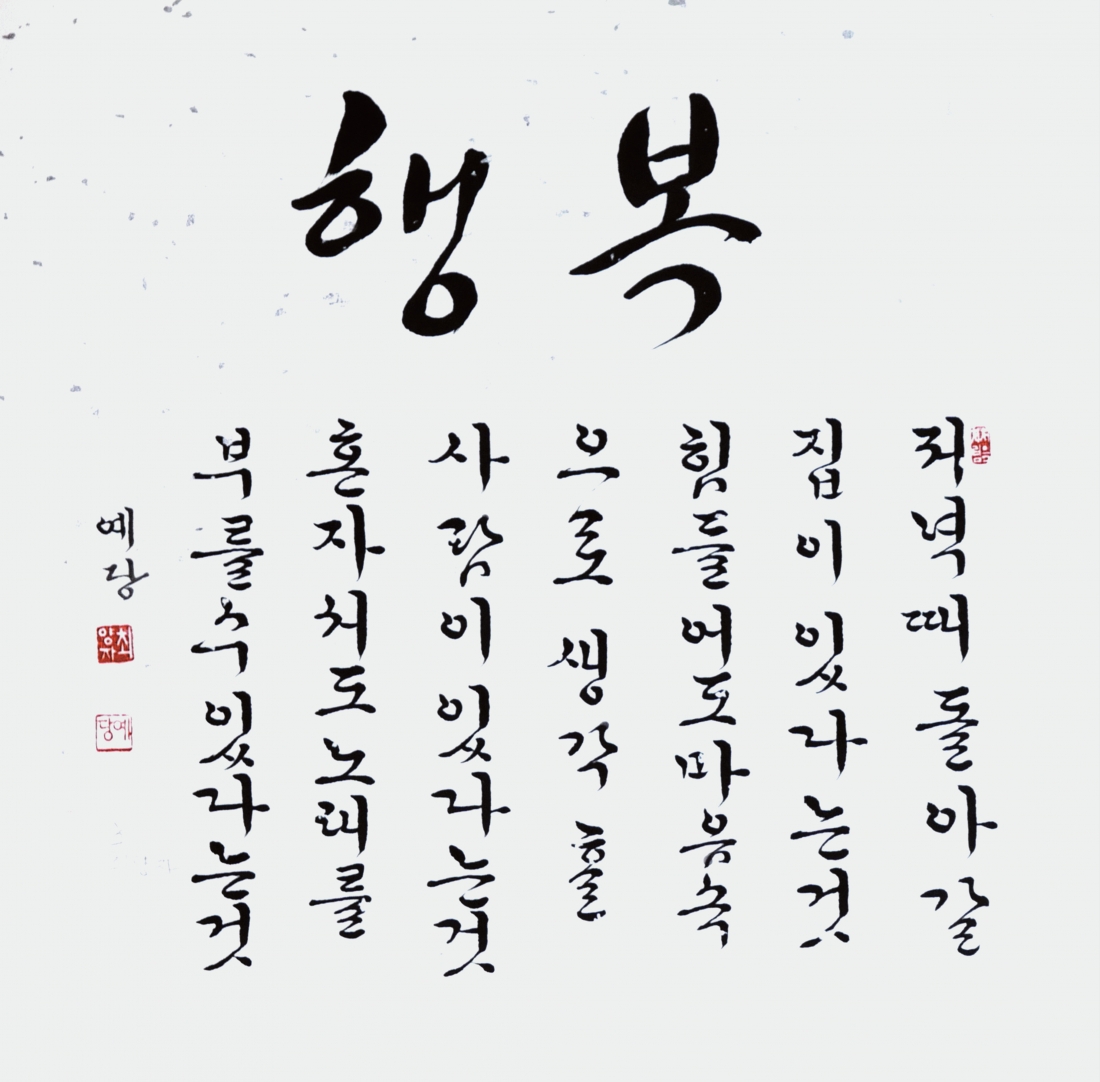 행복
저녁때돌아갈
집이있다는것
힘들어도마음속
으로 생각 할
사람이있다는것
혼자서도노래를
부를수있다는것
예당
최양자
예당